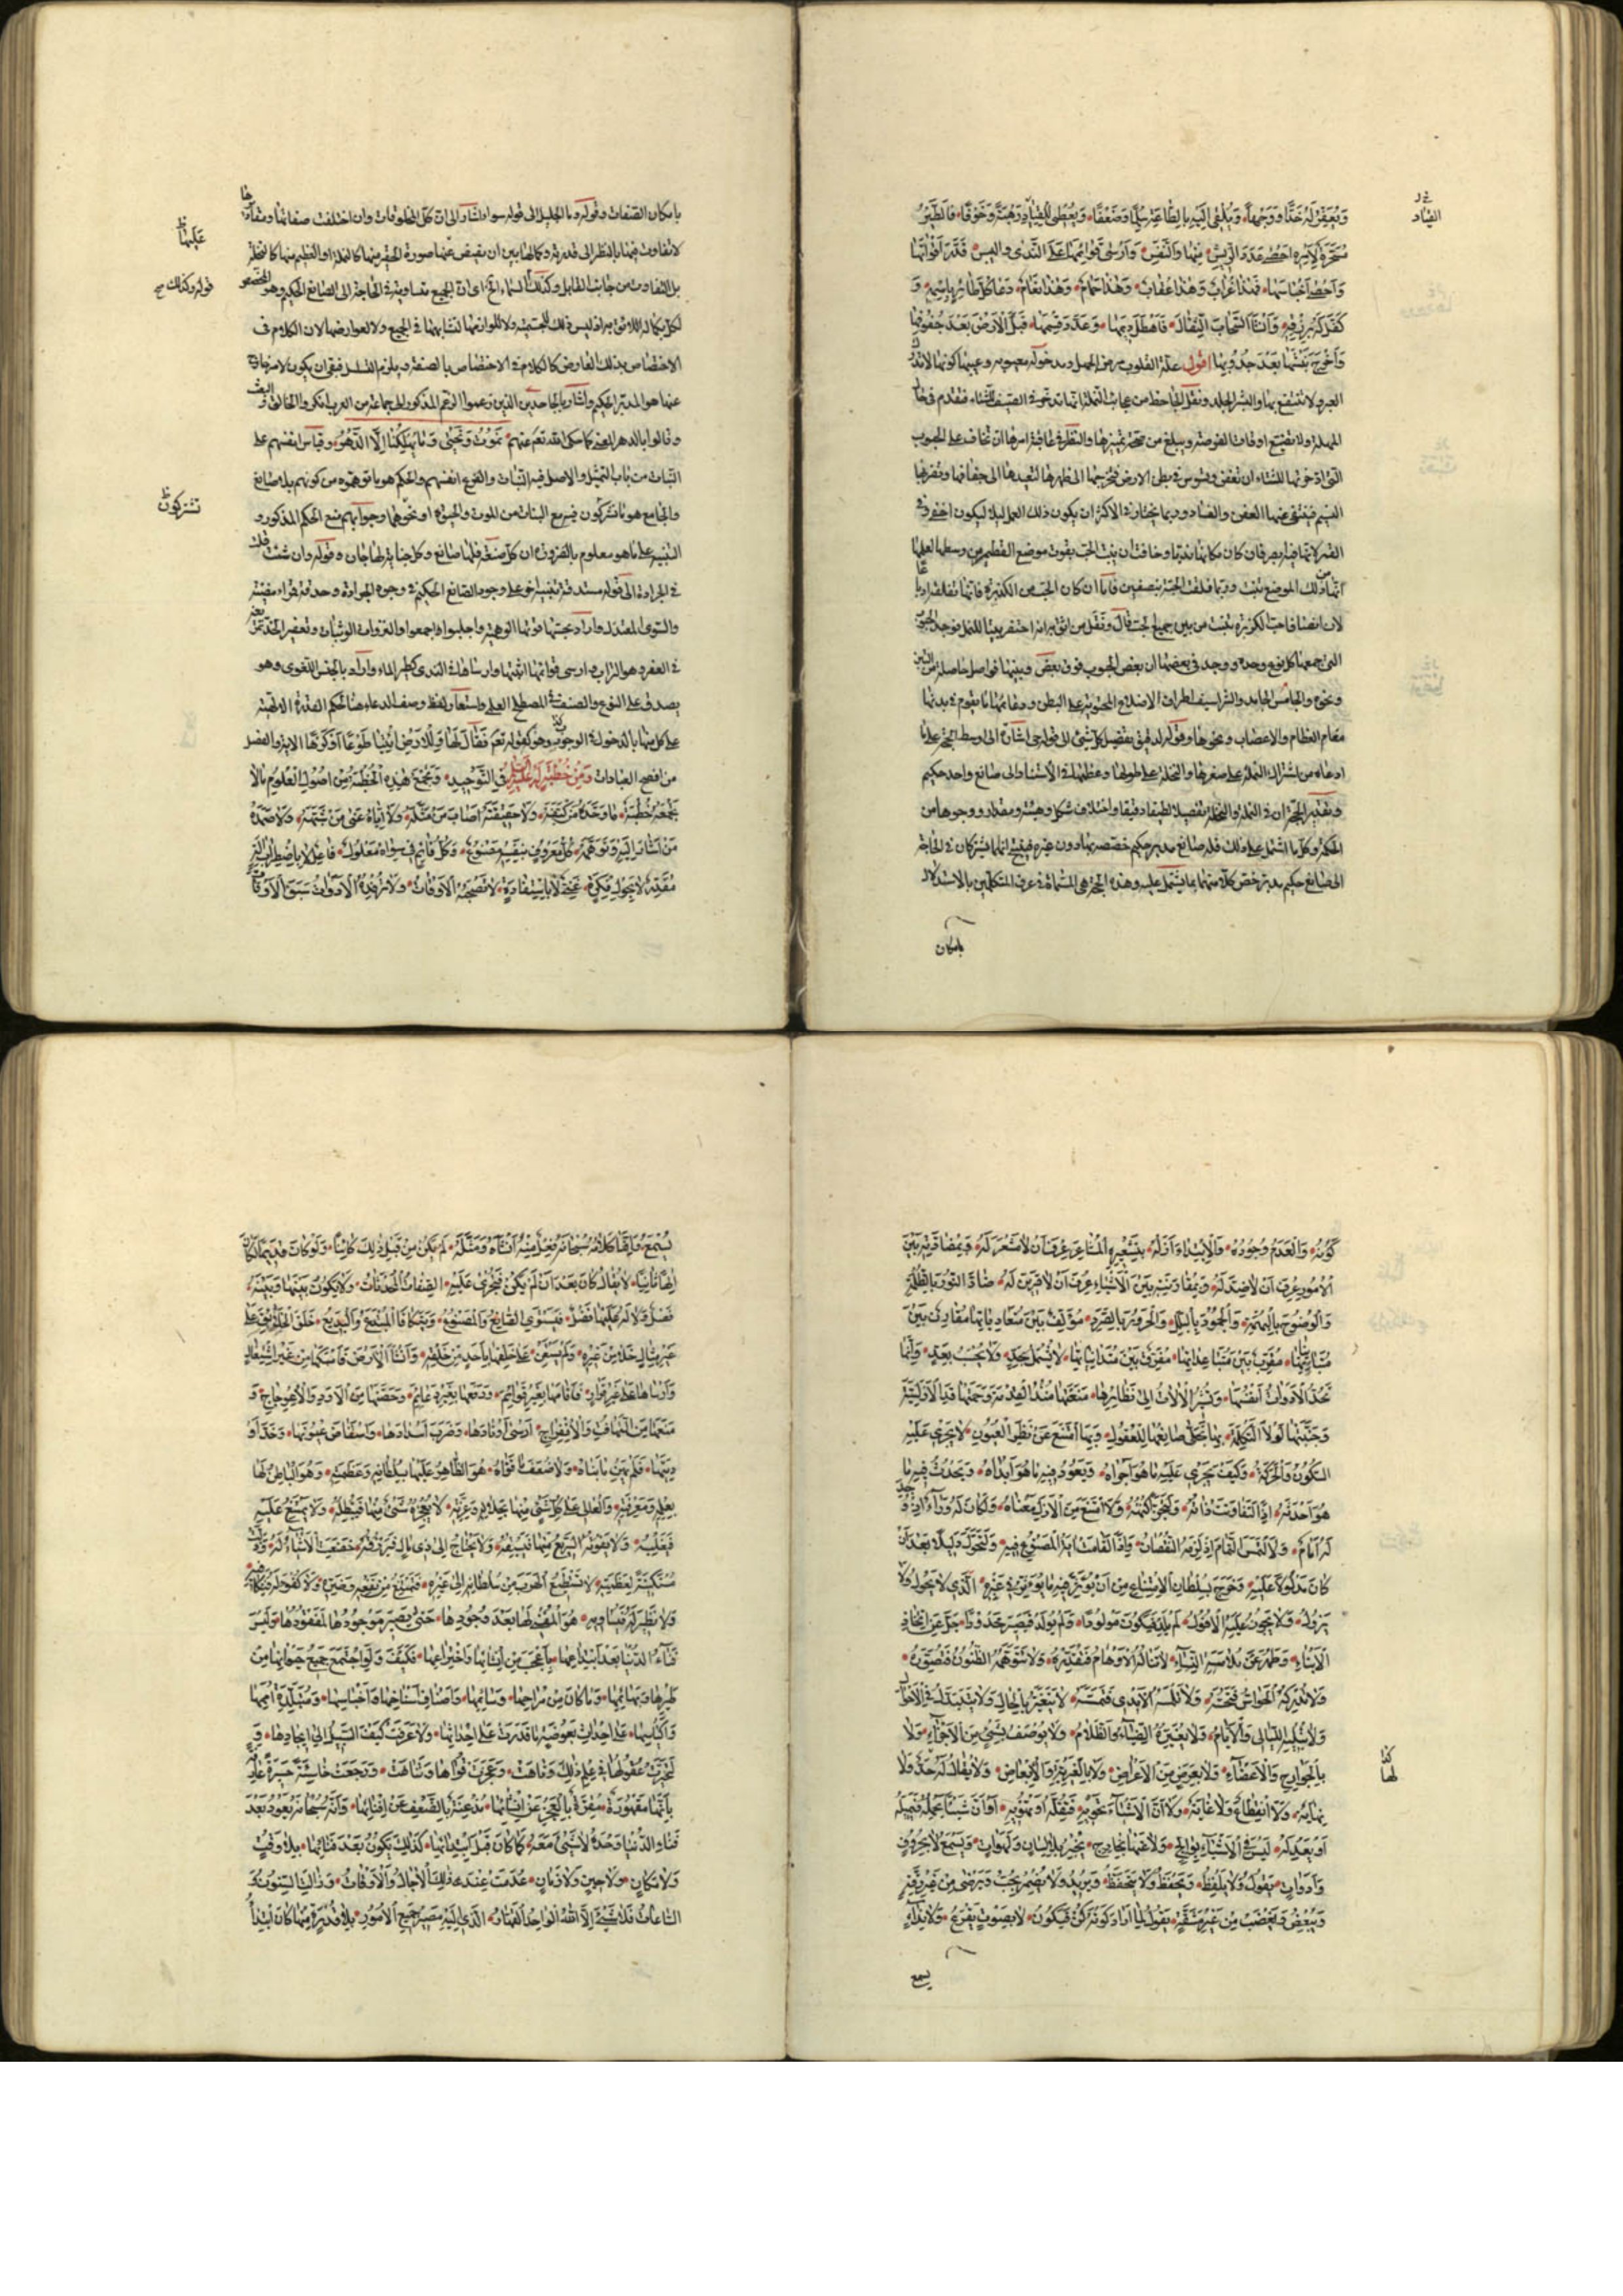 وَيُعَفِّرُ لَهُ خَدًّا وَوَجْهًا وَيُلْقِي إِلَيْهِ بِالطَّاعَةِ سِلْمًا وَضَعْفًا وَيُعْطِي لَهُ الْقِيَادَ رَهْبَةً وَخَوْفًا فَالطَّيْرُ
القياد
مُسَخَّرَةٌ لِأَمْرِهِ أَحْصَى عَدَدَ الرِّيشِ مِنْهَا وَالنَّفَسِ وَأَرْسَى قَوَائِمَهَا عَلَى النَّدَى وَالْيَبَسِ قَدَّرَ أَقْوَاتَهَا
وَأَحْصَى أَجْنَاسَهَا فَهَذَا غُرَابٌ وَهَذَا عُقَابٌ وَهَذَا حَمَامٌ وَهَذَا نَعَامٌ دَعَا كُلَّ طَائِرٍ بِاسْمِهِ وَ
كَفَلَ لَهُ بِرِزْقِهِ وَأَنْشَأَ السَّحَابَ الثِّقَالَ فَأَهْطَلَ دِيَمَهَا وَعَدَّدَ قِسَمَهَا فَبَلَّ الْأَرْضَ بَعْدَ جُفُوفِهَا
وَأَخْرَجَ نَبْتَهَا بَعْدَ جُدُوبِهَا اقول علة القلوب من الجهل ومدخوله معيوبه وعيبها كونها لا تدرك
العبر ولا تنتفع بها والبشر الجلد ونقل الجاحظ من عجائب النملة انها تدخر في الصيف للشتاء فتقدم في حال
المهلة ولا تضيع اوقات الفرصة ويبلغ من صحة تمييزها والنظر في عاقبة امرها ان تخاف على الحبوب
التى ادخرتها للشتاء ان تعفن وتسوس في بطن الارض فتخرجها الى ظهرها لتعيدها الى جفافها ويضربها
النسيم فينتفى عنها العفن والفساد وربما تختار في الاكثر ان يكون ذلك العمل ليلا ليكون اخفى وفى
القمر لانها فيه ابصر فان كان مكانها نديا وخافت ان ينبت الحب نقرت موضع القطمير من وسطها لعلمها
انها من ذلك الموضع تنبت وربما فلقت الحبة بنصفين فاما ان كان الحب من الكزبرة فانها تفلقه ارباعا
لان انصاف حب الكزبرة تنبت من بين جميع الحب قال ونقل من اثق به انه احتفر بيتا للنمل فوجد الحبوب
التى جمعها كل نوع وحده ووجد في بعضها ان بعض الحبوب فوق بعض وبينها فواصل حاصلة من التبن
ونحوه والجامس الجامد والشراسيف اطراف الاضلاع المحتوية على البطن ودعائمها ما يقوم به بدنها
مقام العظام والاعصاب ونحوها وقوله لدقيق تفصيل كل شئ الى قوله حى اشارة الى اوسط الحجة على ما
ادعاه من اشتراك النملة على صغرها والنخلة على طولها وعظمها في الاستناد الى صانع واحد حكيم
وتقدير الحجة ان في النملة والنخلة تفصيلا لطيفا دقيقا واختلاف شكل وهيئة ومقدار ووجوها من
الحكمة وكل ما اشتمل على ذلك فله صانع مدبر حكيم خصصه بها دون غيره فينتج انهما يشتركان في الحاجة
الى صانع حكيم مدبر خص كلا منهما بما يشتمل عليه وهذه الحجة هى المسماة في عرف المتكلمين بالاستدلال
بامكان
بامكان الصفات وقوله وما الجليل الى قوله سواء اشارة الى ان كل المخلوقات وان اختلفت صفاتها ومقاديرها
عليها ظ
لا تفاوت فيها بالنظر الى قدرته وكمالها بين ان يفيض عنها صورة الحقير منها كالنملة او العظيم منها كالنخلة
بل التفاوت من جانب القابل وكذلك السماء الخ اى ان الجميع متساوية في الحاجة الى الصانع الحكيم وهو المخصص
قوله وكذلك صح
لكل بكماله اللائق به اذ ليس ذلك للجسمية ولا للوازمها لتشابهها في الجميع ولا لعوارضها لان الكلام في
الاختصاص بذلك العارض كالكلام في الاختصاص بالصفة ويلزم التسلسل فبقى ان يكون لامر خارج
عنها هو المدبر الحكيم واشار بالجاحدين الذين زعموا الزعم المذكور الى جماعة من العرب انكروا الخالق والبعث
وقالوا بالدهر المفنى كما حكى الله تعم عنهم نَمُوتُ وَنَحْيَى وَمَا يُهْلِكُنَا إِلَّا الدَّهْرُ وقياس انفسهم على
النبات من باب التمثيل والاصل فيه النبات والفرع انفسهم والحكم هو ما توهموه من كونهم بلا صانع
والجامع هو ما تشتركون فيه مع النبات من الموت والحيوة او نحوهما وجوابهم منع الحكم المذكور و
تشتركون ظ
التنبيه على ما هو معلوم بالضرورة ان كل صنعة فلها صانع وكل جناية لها جان وقوله وان شئت قلت
في الجرادة الى قوله مستدقة تنبيه اخر على وجود الصانع الحكيم في وجود الجرادة وحدقة قمراء مضيئة
والسوى المعتدل واراد بحبتها قوتها الوهمية واجلبوا اجمعوا والنزوات الوثبات وتعفير الخد تمريغه
في العفر وهو التراب وارسى قوائمها اثبتها وارساها في الندى كطير الماء واراد بالجنس اللغوى وهو
يصدق على النوع والصنف في المصطلح العلمى واستعار لفظ وصف الدعاء هنا لحكم القدرة الالهية
على كل منها بالدخول في الوجود وهو كقوله تعم فَقَالَ لَهَا وَلِلْأَرْضِ ائْتِيَا طَوْعًا أَوْ كَرْهًا الاية والفصل
من افصح العبادات وَمِنْ خُطْبَةٍ لَهُ عَلَيْهِ السَّلَمُ فِي التَّوْحِيدِ وَتَجْمَعُ هَذِهِ الْخُطْبَةُ مِنْ أُصُولِ الْعُلُومِ مَا لَا
تَجْمَعُهُ خُطْبَةٌ مَا وَحَّدَهُ مَنْ كَيَّفَهُ وَلَا حَقِيقَتَهُ أَصَابَ مَنْ مَثَّلَهُ وَلَا إِيَّاهُ عَنَى مَنْ شَبَّهَهُ وَلَا صَمَدَهُ
مَنْ أَشَارَ إِلَيْهِ وَتَوَهَّمَهُ كُلُّ مَعْرُوفٍ بِنَفْسِهِ مَصْنُوعٌ وَكُلُّ قَائِمٍ فِي سِوَاهُ مَعْلُولٌ فَاعِلٌ لَا بِاضْطِرَابِ آلَةٍ
مُقَدِّرٌ لَا بِجَوْلِ فِكْرَةٍ غَنِيٌّ لَا بِاسْتِفَادَةٍ لَا تَصْحَبُهُ الْأَوْقَاتُ وَلَا تَرْفِدُهُ الْأَدَوَاتُ سَبَقَ الْأَوْقَاتَ
كَوْنُهُ وَالْعَدَمَ وُجُودُهُ وَالِابْتِدَاءَ أَزَلُهُ بِتَشْعِيرِهِ الْمَشَاعِرَ عُرِفَ أَنْ لَا مَشْعَرَ لَهُ وَبِمُضَادَّتِهِ بَيْنَ
الْأُمُورِ عُرِفَ أَنْ لَا ضِدَّ لَهُ وَبِمُقَارَنَتِهِ بَيْنَ الْأَشْيَاءِ عُرِفَ أَنْ لَا قَرِينَ لَهُ ضَادَّ النُّورَ بِالظُّلْمَةِ
وَالْوُضُوحَ بِالْبُهْمَةِ وَالْجُمُودَ بِالْبَلَلِ وَالْحَرُورَ بِالصَّرَدِ مُؤَلِّفٌ بَيْنَ مُتَعَادِيَاتِهَا مُقَارِنٌ بَيْنَ
مُتَبَايِنَاتِهَا مُقَرِّبٌ بَيْنَ مُتَبَاعِدَاتِهَا مُفَرِّقٌ بَيْنَ مُتَدَانِيَاتِهَا لَا يُشْمَلُ بِحَدٍّ وَلَا يُحْسَبُ بِعَدٍّ وَإِنَّمَا
تَحُدُّ الْأَدَوَاتُ أَنْفُسَهَا وَتُشِيرُ الْآلَاتُ إِلَى نَظَائِرِهَا مَنَعَتْهَا مُنْذُ الْقِدْمَةَ وَحَمَتْهَا قَدُ الْأَزَلِيَّةَ
وَجَنَّبَتْهَا لَوْلَا التَّكْمِلَةَ بِهَا تَجَلَّى صَانِعُهَا لِلْعُقُولِ وَبِهَا امْتَنَعَ عَنْ نَظَرِ الْعُيُونِ لَا يَجْرِي عَلَيْهِ
السُّكُونُ وَالْحَرَكَةُ وَكَيْفَ يَجْرِي عَلَيْهِ مَا هُوَ أَجْرَاهُ وَيَعُودُ فِيهِ مَا هُوَ أَبْدَاهُ وَيَحْدُثُ فِيهِ مَا
هُوَ أَحْدَثَهُ إِذًا لَتَفَاوَتَتْ ذَاتُهُ وَلَتَجَزَّأَ كُنْهُهُ وَلَامْتَنَعَ مِنَ الْأَزَلِ مَعْنَاهُ وَلَكَانَ لَهُ وَرَاءٌ إِذْ وُجِدَ
لَهُ أَمَامٌ وَلَالْتَمَسَ التَّمَامَ إِذْ لَزِمَهُ النُّقْصَانُ وَإِذًا لَقَامَتْ آيَةُ الْمَصْنُوعِ فِيهِ وَلَتَحَوَّلَ دَلِيلًا بَعْدَ أَنْ
كَانَ مَدْلُولًا عَلَيْهِ وَخَرَجَ بِسُلْطَانِ الِامْتِنَاعِ مِنْ أَنْ يُؤَثِّرَ فِيهِ مَا يُؤَثِّرُ فِي غَيْرِهِ الَّذِي لَا يَحُولُ وَلَا
يَزُولُ وَلَا يَجُوزُ عَلَيْهِ الْأُفُولُ لَمْ يَلِدْ فَيَكُونَ مَوْلُودًا وَلَمْ يُولَدْ فَيَصِيرَ مَحْدُودًا جَلَّ عَنِ اتِّخَاذِ
الْأَبْنَاءِ وَطَهُرَ عَنْ مُلَامَسَةِ النِّسَاءِ لَا تَنَالُهُ الْأَوْهَامُ فَتُقَدِّرَهُ وَلَا تَتَوَهَّمُهُ الظُّنُونُ فَتُصَوِّرَهُ
وَلَا تُدْرِكُهُ الْحَوَاسُّ فَتُحِسَّهُ وَلَا تَلْمِسُهُ الْأَيْدِي فَتَمَسَّهُ لَا يَتَغَيَّرُ بِالْحَالِ وَلَا يَتَبَدَّلُ فِي الْأَحْوَالِ
وَلَا تُبْلِيهِ اللَّيَالِي وَالْأَيَّامُ وَلَا يُغَيِّرُهُ الضِّيَاءُ وَالظَّلَامُ وَلَا يُوصَفُ بِشَيْءٍ مِنَ الْأَجْزَاءِ وَلَا
بِالْجَوَارِحِ وَالْأَعْضَاءِ وَلَا بِعَرَضٍ مِنَ الْأَعْرَاضِ وَلَا بِالْغَيْرِيَّةِ وَالْأَبْعَاضِ وَلَا يُقَالُ لَهُ حَدٌّ وَلَا
نِهَايَةٌ وَلَا انْقِطَاعٌ وَلَا غَايَةٌ وَلَا أَنَّ الْأَشْيَاءَ تَحْوِيهِ فَتُقِلَّهُ أَوْ تُهْوِيَهُ أَوْ أَنَّ شَيْئًا يَحْمِلُهُ فَيُمِيلَهُ
أَوْ يُعَدِّلَهُ لَيْسَ فِي الْأَشْيَاءِ بِوَالِجٍ وَلَا عَنْهَا بِخَارِجٍ يُخْبِرُ لَا بِلِسَانٍ وَلَهَوَاتٍ وَيَسْمَعُ لَا بِخُرُوقٍ
وَأَدَوَاتٍ يَقُولُ وَلَا يَلْفِظُ وَيَحْفَظُ وَلَا يَتَحَفَّظُ وَيُرِيدُ وَلَا يُضْمِرُ يُحِبُّ وَيَرْضَى مِنْ غَيْرِ رِقَّةٍ
وَيُبْغِضُ وَيَغْضَبُ مِنْ غَيْرِ مَشَقَّةٍ يَقُولُ لِمَا أَرَادَ كَوْنَهُ كُنْ فَيَكُونُ لَا بِصَوْتٍ يَقْرَعُ وَلَا بِنِدَاءٍ
يسمع
يُسْمَعُ وَإِنَّمَا كَلَامُهُ سُبْحَانَهُ فِعْلٌ مِنْهُ أَنْشَأَهُ وَمَثَّلَهُ لَمْ يَكُنْ مِنْ قَبْلِ ذَلِكَ كَائِنًا وَلَوْ كَانَ قَدِيمًا لَكَانَ
إِلَهًا ثَانِيًا لَا يُقَالُ كَانَ بَعْدَ أَنْ لَمْ يَكُنْ فَتَجْرِيَ عَلَيْهِ الصِّفَاتُ الْمُحْدَثَاتُ وَلَا يَكُونُ بَيْنَهَا وَبَيْنَهُ
فَصْلٌ وَلَا لَهُ عَلَيْهَا فَضْلٌ فَيَسْتَوِيَ الصَّانِعُ وَالْمَصْنُوعُ وَيَتَكَافَأَ الْمُبْتَدِعُ وَالْبَدِيعُ خَلَقَ الْخَلَائِقَ عَلَى
غَيْرِ مِثَالٍ خَلَا مِنْ غَيْرِهِ وَلَمْ يَسْتَعِنْ عَلَى خَلْقِهَا بِأَحَدٍ مِنْ خَلْقِهِ وَأَنْشَأَ الْأَرْضَ فَأَمْسَكَهَا مِنْ غَيْرِ اشْتِغَالٍ
وَأَرْسَاهَا عَلَى غَيْرِ قَرَارٍ وَأَقَامَهَا بِغَيْرِ قَوَائِمَ وَرَفَعَهَا بِغَيْرِ دَعَائِمَ وَحَصَّنَهَا مِنَ الْأَوَدِ وَالِاعْوِجَاجِ وَ
مَنَعَهَا مِنَ التَّهَافُتِ وَالِانْفِرَاجِ أَرْسَى أَوْتَادَهَا وَضَرَبَ أَسْدَادَهَا وَاسْتَفَاضَ عُيُونَهَا وَخَدَّ أَوْ
دِيَتَهَا فَلَمْ يَهِنْ مَا بَنَاهُ وَلَا ضَعُفَ مَا قَوَّاهُ هُوَ الظَّاهِرُ عَلَيْهَا بِسُلْطَانِهِ وَعَظَمَتِهِ وَهُوَ الْبَاطِنُ لَهَا
بِعِلْمِهِ وَمَعْرِفَتِهِ وَالْعَالِي عَلَى كُلِّ شَيْءٍ مِنْهَا بِجَلَالِهِ وَعِزَّتِهِ لَا يُعْجِزُهُ شَيْءٌ مِنْهَا طَلَبَهُ وَلَا يَمْتَنِعُ عَلَيْهِ
فَيَغْلِبَهُ وَلَا يَفُوتُهُ السَّرِيعُ مِنْهَا فَيَسْبِقَهُ وَلَا يَحْتَاجُ إِلَى ذِي مَالٍ فَيَرْزُقَهُ خَضَعَتِ الْأَشْيَاءُ لَهُ وَذَلَّتْ
مُسْتَكِينَةً لِعَظَمَتِهِ لَا تَسْتَطِيعُ الْهَرَبَ مِنْ سُلْطَانِهِ إِلَى غَيْرِهِ فَتَمْتَنِعَ مِنْ نَفْعِهِ وَضَرِّهِ وَلَا كُفْوَ لَهُ فَيُكَافِيَهُ
وَلَا نَظِيرَ لَهُ فَيُسَاوِيَهُ هُوَ الْمُفْنِي لَهَا بَعْدَ وُجُودِهَا حَتَّى يَصِيرَ مَوْجُودُهَا كَمَفْقُودِهَا وَلَيْسَ
فَنَاءُ الدُّنْيَا بَعْدَ ابْتِدَاعِهَا بِأَعْجَبَ مِنْ إِنْشَائِهَا وَاخْتِرَاعِهَا وَكَيْفَ وَلَوِ اجْتَمَعَ جَمِيعُ حَيَوَانِهَا مِنْ
طَيْرِهَا وَبَهَائِمِهَا وَمَا كَانَ مِنْ مُرَاحِهَا وَسَائِمِهَا وَأَصْنَافِ أَسْنَاخِهَا وَأَجْنَاسِهَا وَمُتَبَلِّدَةِ أُمَمِهَا
وَأَكْيَاسِهَا عَلَى إِحْدَاثِ بَعُوضَةٍ مَا قَدَرَتْ عَلَى إِحْدَاثِهَا وَلَا عَرَفَتْ كَيْفَ السَّبِيلُ إِلَى إِيجَادِهَا وَ
لَتَحَيَّرَتْ عُقُولُهَا فِي عِلْمِ ذَلِكَ وَتَاهَتْ وَعَجَزَتْ قُوَاهَا وَتَنَاهَتْ وَرَجَعَتْ خَاسِئَةً حَسِيرَةً عَارِفَةً
بِأَنَّهَا مَقْهُورَةٌ مُقِرَّةً بِالْعَجْزِ عَنْ إِنْشَائِهَا مُذْعِنَةً بِالضَّعْفِ عَنْ إِفْنَائِهَا وَأَنَّهُ سُبْحَانَهُ يَعُودُ بَعْدَ
فَنَاءِ الدُّنْيَا وَحْدَهُ لَا شَيْءَ مَعَهُ كَمَا كَانَ قَبْلَ ابْتِدَائِهَا كَذَلِكَ يَكُونُ بَعْدَ فَنَائِهَا بِلَا وَقْتٍ
وَلَا مَكَانٍ وَلَا حِينٍ وَلَا زَمَانٍ عُدِمَتْ عِنْدَ ذَلِكَ الْآجَالُ وَالْأَوْقَاتُ وَزَالَتِ السِّنُونَ وَ
السَّاعَاتُ فَلَا شَيْءَ إِلَّا اللَّهُ الْوَاحِدُ الْقَهَّارُ الَّذِي إِلَيْهِ مَصِيرُ جَمِيعِ الْأُمُورِ بِلَا قُدْرَةٍ مِنْهَا كَانَ ابْتِدَاءُ